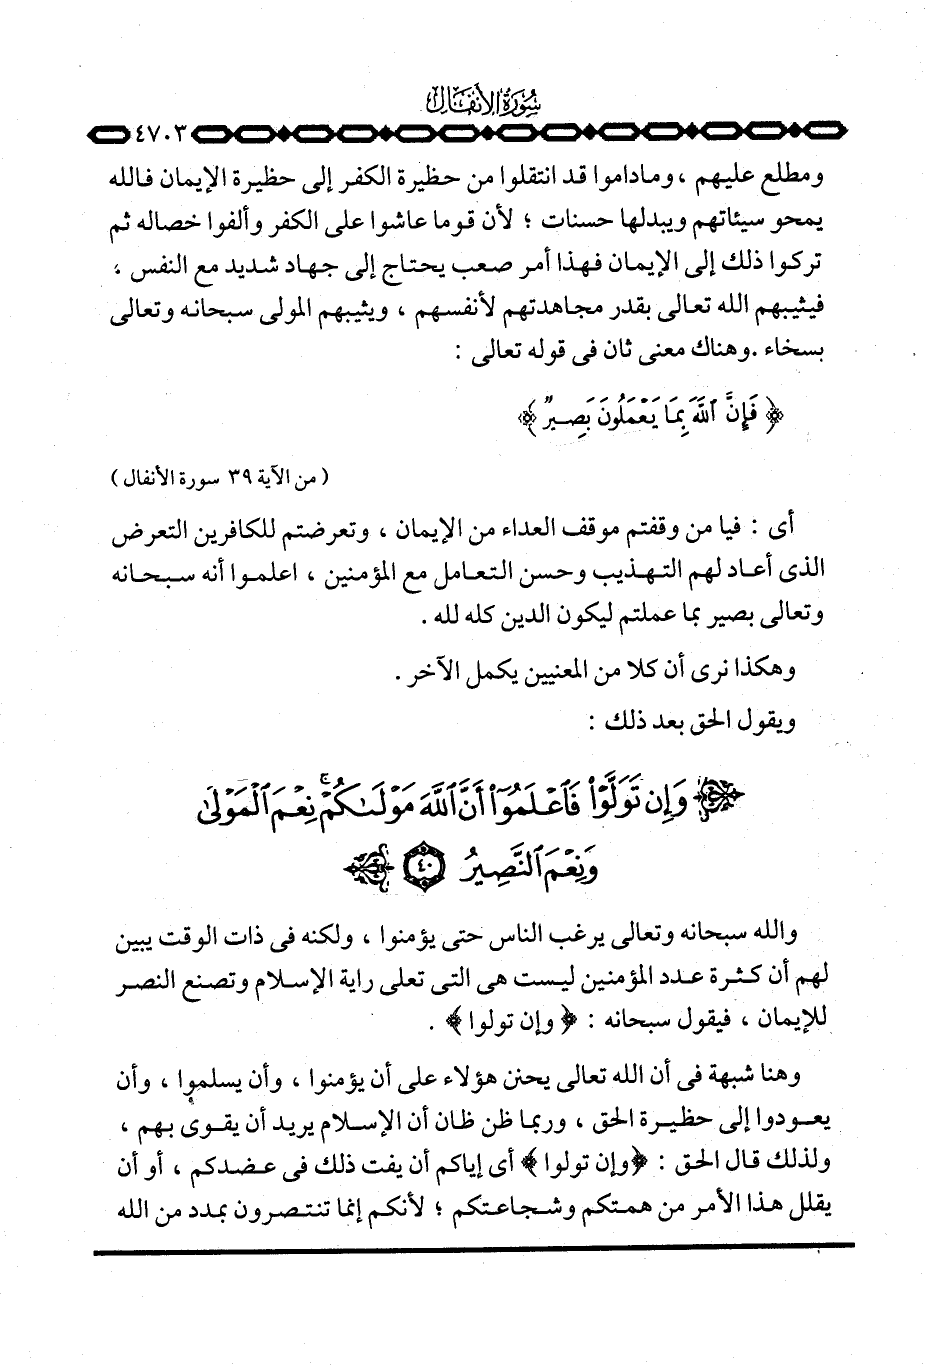 سورة الأنفال
٤٧٠٣
ومطلع عليهم ، وماداموا قد انتقلوا من حظيرة الكفر إلى حظيرة الإيمان فالله
يمحو سيئاتهم ويبدلها حسنات ؛ لأن قوما عاشوا على الكفر وألفوا خصاله ثم
تركوا ذلك إلى الإيمان فهذا أمر صعب يحتاج إلى جهاد شديد مع النفس ،
فيثيبهم الله تعالى بقدر مجاهدتهم لأنفسهم ، ويثيبهم المولى سبحانه وتعالى
بسخاء . وهناك معنى ثان فى قوله تعالى :
﴿ فَإِنَّ ٱللَّهَ بِمَا يَعْمَلُونَ بَصِيرٌ ﴾
( من الآية ٣٩ سورة الأنفال )
أى : فيا من وقفتم موقف العداء من الإيمان ، وتعرضتم للكافرين التعرض
الذى أعاد لهم التهذيب وحسن التعامل مع المؤمنين ، اعلموا أنه سبحانه
وتعالى بصير بما عملتم ليكون الدين كله لله .
وهكذا نرى أن كلا من المعنيين يكمل الآخر .
ويقول الحق بعد ذلك :
﴿ وَإِن تَوَلَّوْا۟ فَٱعْلَمُوٓا۟ أَنَّ ٱللَّهَ مَوْلَىٰكُمْ ۚ نِعْمَ ٱلْمَوْلَىٰ
وَنِعْمَ ٱلنَّصِيرُ ٤٠ ﴾
والله سبحانه وتعالى يرغب الناس حتى يؤمنوا ، ولكنه فى ذات الوقت يبين
لهم أن كثرة عدد المؤمنين ليست هى التى تعلى راية الإسلام وتصنع النصر
للإيمان ، فيقول سبحانه : ﴿ وإن تولوا ﴾ .
وهنا شبهة فى أن الله تعالى يحنن هؤلاء على أن يؤمنوا ، وأن يسلموا ، وأن
يعودوا إلى حظيرة الحق ، وربما ظن ظان أن الإسلام يريد أن يقوى بهم ،
ولذلك قال الحق : ﴿وإن تولوا ﴾ أى إياكم أن يفت ذلك فى عضدكم ، أو أن
يقلل هذا الأمر من همتكم وشجاعتكم ؛ لأنكم إنما تنتصرون بمدد من الله